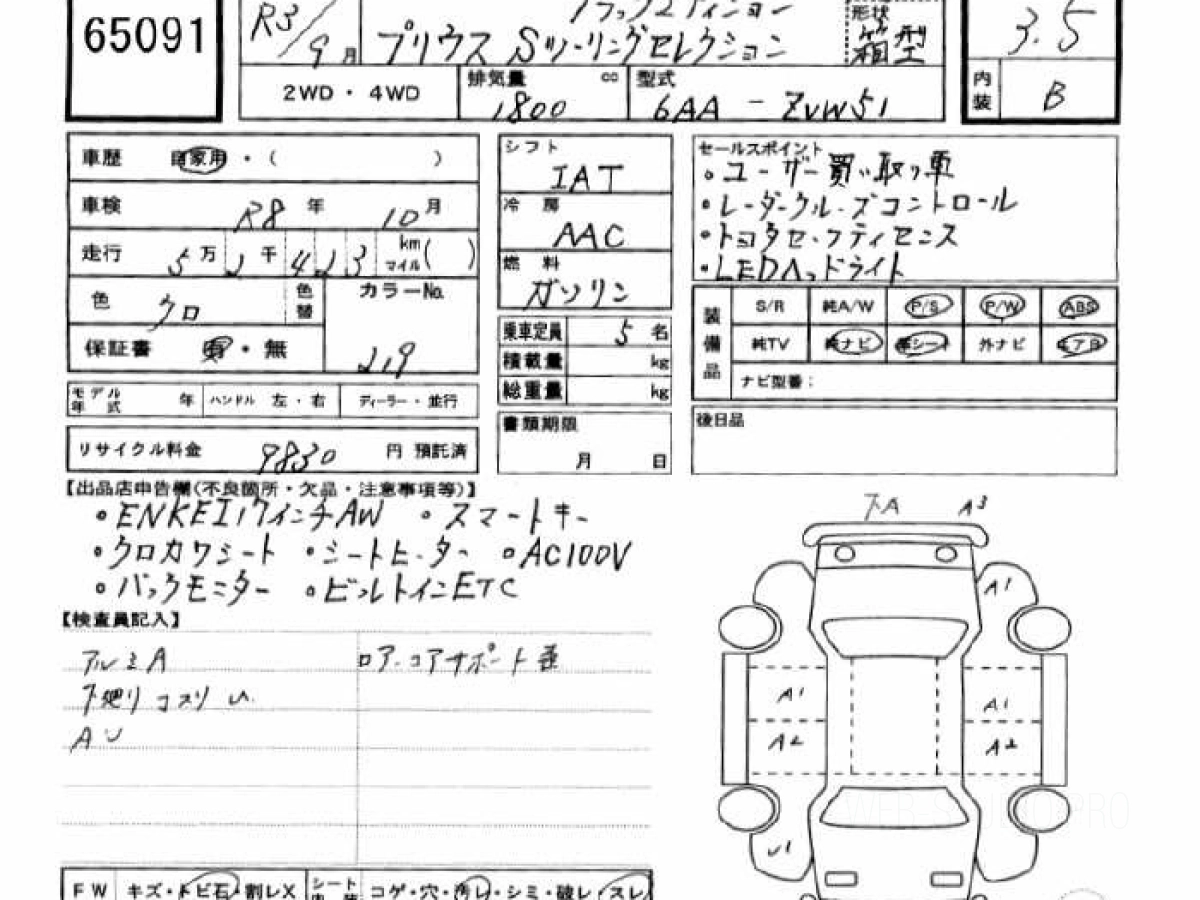 65091
R3/9月
ブラックエディション
プリウス Sツーリングセレクション
形状 箱型
3.5
2WD・4WD
排気量 1800 cc
型式 6AA-ZVW51
内装 B
車歴 自家用・( )
車検 R8年 10月
走行 5万 2千 423 km マイル( )
色 クロ
色替
カラーNo. 219
保証書 有・無
モデル年式 年
ハンドル 左・右
ディーラー・並行
リサイクル料金 9830 円 預託済
シフト IAT
冷房 AAC
燃料 ガソリン
乗車定員 5名
積載量 kg
総重量 kg
書類期限
月 日
セールスポイント
・ユーザー買い取り車
・レーダークルーズコントロール
・トヨタセーフティセンス
・LEDヘッドライト
装備品
S/R 純A/W P/S P/W ABS
純TV 純ナビ 革シート 外ナビ エアB
ナビ型番:
後日品
【出品店申告欄(不良箇所・欠品・注意事項等)】
・ENKEI17インチAW ・スマートキー
・クロカワシート ・シートヒーター ・AC100V
・バックモニター ・ビルトインETC
【検査員記入】
アルミA
下廻りコスリ
AU
ロアーコアサポート歪
下A A3
A1
A1 A1
A2 A2
U1
FW キズ・トビ石・割レX
シート コゲ・穴・汚レ・シミ・破レ・スレ